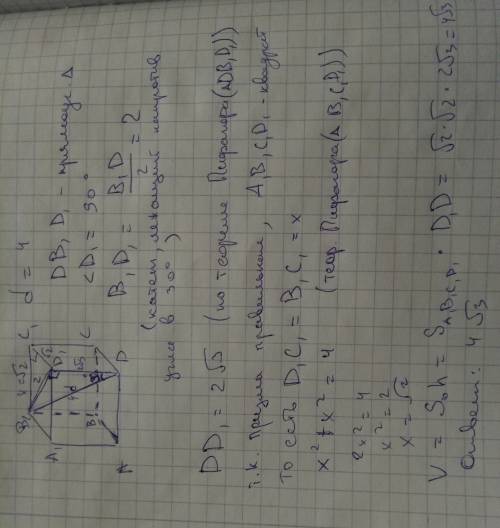 d = 4
DB₁D₁ - прямоуг Δ
<D₁ = 90°
B₁D₁ = B₁D / 2 = 2
(катет, лежащий напротив
угла в 30°)
DD₁ = 2√3 (по теореме Пифагора (ΔDB₁D₁))
т.к. призма правильная, A₁B₁C₁D₁ - квадрат
то есть D₁C₁ = B₁C₁ = x
x² + x² = 4 (теор Пифагора (Δ B₁C₁D₁))
2x² = 4
x² = 2
x = √2
V = S₀h = S A₁B₁C₁D₁ · D₁D = √2·√2 · 2√3 = 4√3
Ответ: 4√3
B₁
x=√2
C₁
A₁
√2
D₁
2
4d
2√3
B
C
A
D